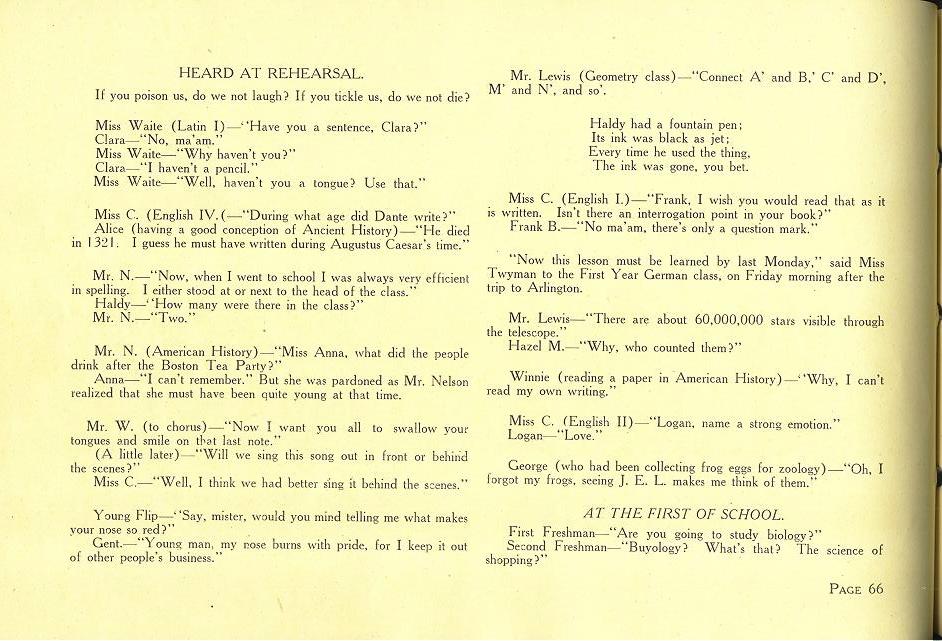 HEARD AT REHEARSAL.
If you poison us, do we not laugh? If you tickle us, do we not die?
Miss Waite (Latin I)—"Have you a sentence, Clara?"
Clara—"No, ma'am."
Miss Waite—"Why haven't you?"
Clara—"I haven't a pencil."
Miss Waite—"Well, haven't you a tongue? Use that."
Miss C. (English IV.(—"During what age did Dante write?"
Alice (having a good conception of Ancient History)—"He died
in 1321. I guess he must have written during Augustus Caesar's time."
Mr. N.—"Now, when I went to school I was always very efficient
in spelling. I either stood at or next to the head of the class."
Haldy—"How many were there in the class?"
Mr. N.—"Two."
Mr. N. (American History)—"Miss Anna, what did the people
drink after the Boston Tea Party?"
Anna—"I can't remember." But she was pardoned as Mr. Nelson
realized that she must have been quite young at that time.
Mr. W. (to chorus)—"Now I want you all to swallow your
tongues and smile on that last note."
(A little later)—"Will we sing this song out in front or behind
the scenes?"
Miss C.—"Well, I think we had better sing it behind the scenes."
Young Flip—"Say, mister, would you mind telling me what makes
your nose so red?"
Gent.—"Young man, my nose burns with pride, for I keep it out
of other people's business."
Mr. Lewis (Geometry class)—"Connect A' and B,' C' and D',
M' and N', and so'.
Haldy had a fountain pen;
Its ink was black as jet;
Every time he used the thing,
The ink was gone, you bet.
Miss C. (English I.)—"Frank, I wish you would read that as it
is written. Isn't there an interrogation point in your book?"
Frank B.—"No ma'am, there's only a question mark."
"Now this lesson must be learned by last Monday," said Miss
Twyman to the First Year German class, on Friday morning after the
trip to Arlington.
Mr. Lewis—"There are about 60,000,000 stars visible through
the telescope."
Hazel M.—"Why, who counted them?"
Winnie (reading a paper in American History)—"Why, I can't
read my own writing."
Miss C. (English II)—"Logan, name a strong emotion."
Logan—"Love."
George (who had been collecting frog eggs for zoology)—"Oh, I
forgot my frogs, seeing J. E. L. makes me think of them."
AT THE FIRST OF SCHOOL.
First Freshman—"Are you going to study biology?"
Second Freshman—"Buyology? What's that? The science of
shopping?"
PAGE 66